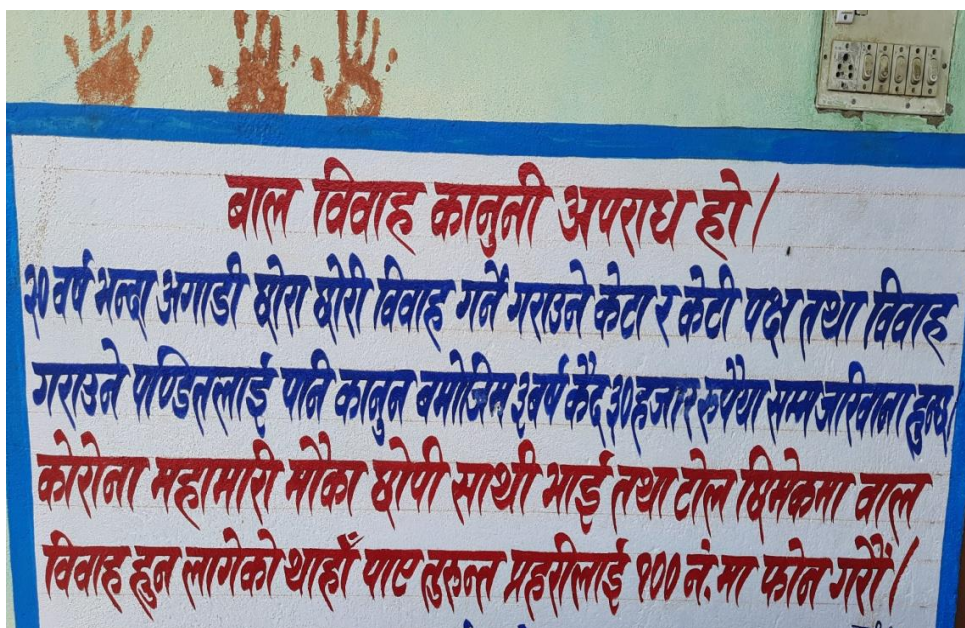 बाल विवाह कानुनी अपराध हो।
२० वर्ष भन्दा अगाडी छोरा छोरी विवाह गर्ने गराउने केटा र केटी पक्ष तथा विवाह
गराउने पण्डितलाई पनि कानुन बमोजिम ३ बर्ष कैद ३० हजार रुपैया सम्म जरिवाना हुन्छ।
कोरोना महामारी मौका छोपी साथी भाई तथा टोल छिमेकमा वाल
विवाह हुन लागेको थाहाँ पाए तुरुन्त प्रहरीलाई १०० नं. मा फोन गरौं।